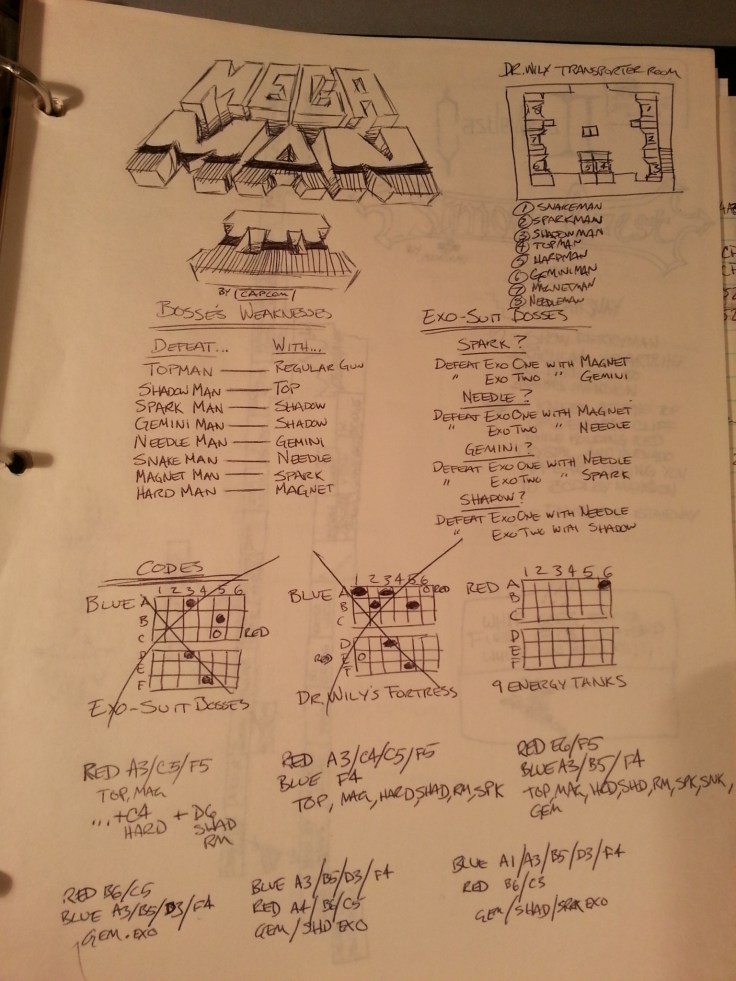 MEGA
MAN
III
BY CAPCOM
DR. WILY TRANSPORTER ROOM
① SNAKEMAN
② SPARKMAN
③ SHADOWMAN
④ TOPMAN
⑤ HARDMAN
⑥ GEMINIMAN
⑦ MAGNETMAN
⑧ NEEDLEMAN
BOSSE'S WEAKNESSES
DEFEAT... WITH...
TOPMAN — REGULAR GUN
SHADOW MAN — TOP
SPARK MAN — SHADOW
GEMINI MAN — SHADOW
NEEDLE MAN — GEMINI
SNAKE MAN — NEEDLE
MAGNET MAN — SPARK
HARD MAN — MAGNET
EXO-SUIT BOSSES
SPARK?
DEFEAT EXO ONE WITH MAGNET
" EXO TWO " GEMINI
NEEDLE?
DEFEAT EXO ONE WITH MAGNET
" EXO TWO " NEEDLE
GEMINI?
DEFEAT EXO ONE WITH NEEDLE
" EXO TWO " SPARK
SHADOW?
DEFEAT EXO ONE WITH NEEDLE
" EXO TWO WITH SHADOW
CODES
1 2 3 4 5 6
BLUE A
B
C O RED
D
E
F
EXO-SUIT BOSSES
1 2 3 4 5 6
BLUE A O RED
B
C
D
RED E O
F
DR. WILY'S FORTRESS
1 2 3 4 5 6
RED A
B
C
D
E
F
9 ENERGY TANKS
RED A3/C3/F5
TOP, MAG
...+C4 + D6
HARD SHAD
RM
RED A3/C4/C5/F5
BLUE F4
TOP, MAG, HARD, SHAD, RM, SPK
RED E6/F5
BLUE A3/B5/F4
TOP, MAG, HRD, SHD, RM, SPK, SNK,
GEM
RED B6/C5
BLUE A3/B5/D3/F4
GEM. EXO
BLUE A3/B5/D3/F4
RED A4/B6/C5
GEM/SHD EXO
BLUE A1/A3/B5/D3/F4
RED B6/C5
GEM/SHAD/SPRK EXO